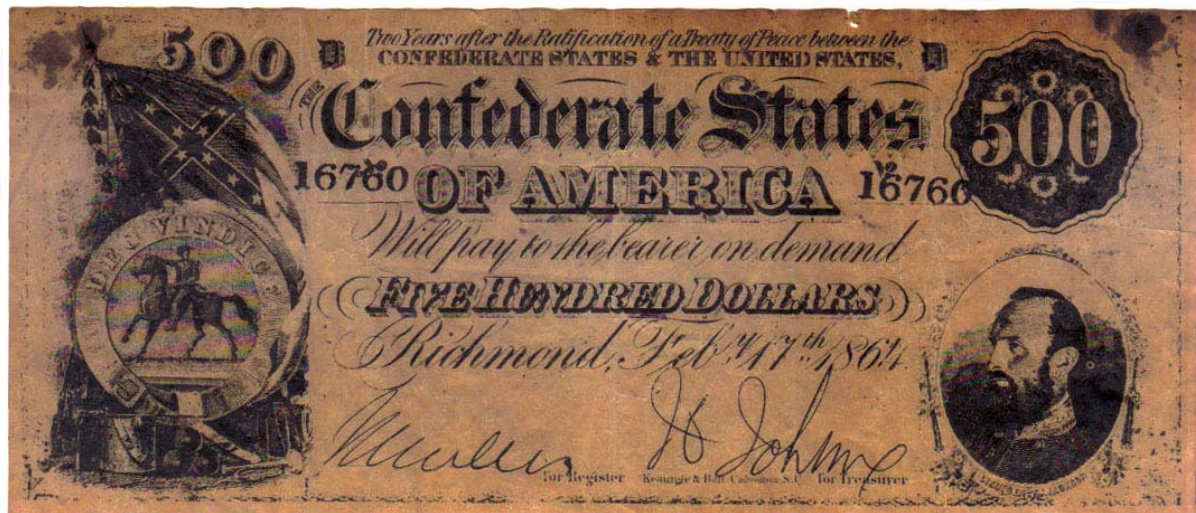 500
Two Years after the Ratification of a Treaty of Peace between the
CONFEDERATE STATES & THE UNITED STATES,
THE
Confederate States
500
16760 OF AMERICA 16760
Will pay to the bearer on demand
FIVE HUNDRED DOLLARS
Richmond, Feby. 17th, 1864
for Register
for Treasurer